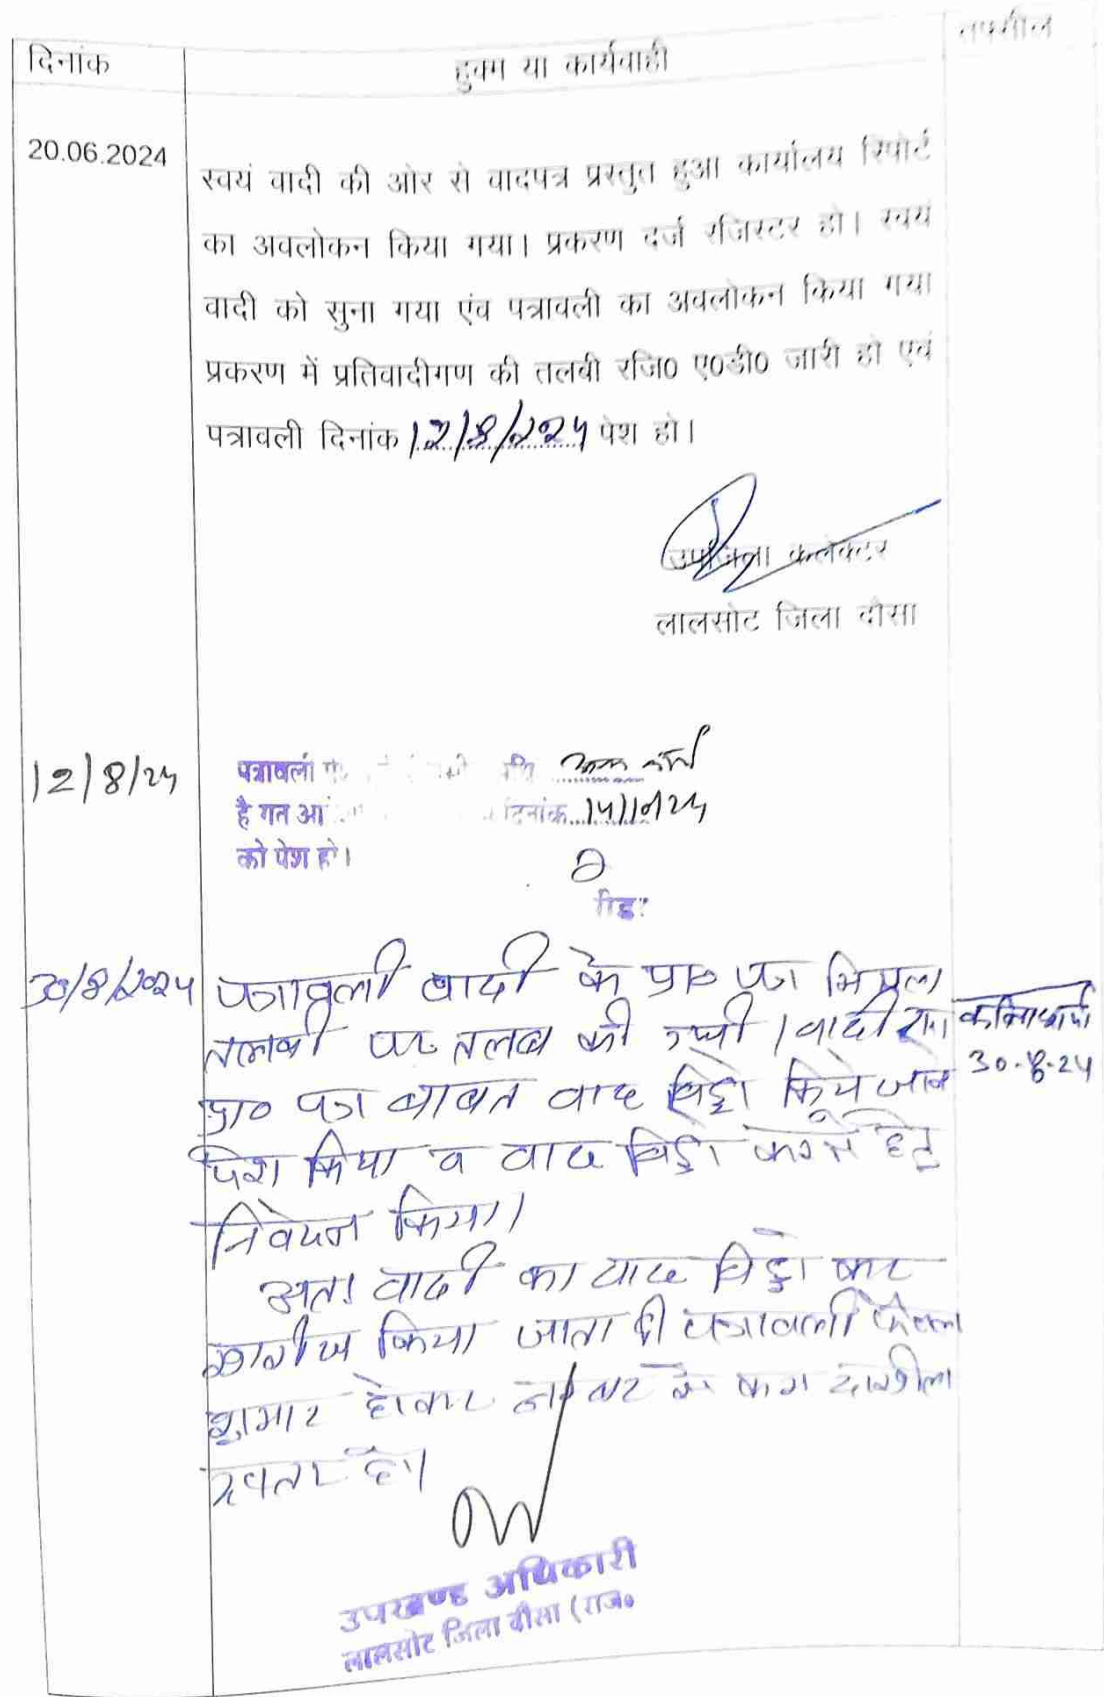 दिनांक
हुक्म या कार्यवाही
तफसील
20.06.2024
स्वयं वादी की ओर से वादपत्र प्रस्तुत हुआ कार्यालय रिपोर्ट
का अवलोकन किया गया। प्रकरण दर्ज रजिस्टर हो। स्वयं
वादी को सुना गया एंव पत्रावली का अवलोकन किया गया
प्रकरण में प्रतिवादीगण की तलबी रजि० ए०डी० जारी हो एवं
पत्रावली दिनांक 12/8/2024 पेश हो।
उपजिला कलेक्टर
लालसोट जिला दौसा
12/8/24
पत्रावली
है गत आ दिनांक 14/10/24
को पेश हो।
रीडर
30/8/2024
पत्रावली वादी के प्रा० पत्र
तलबी पर तलब की गयी। वादी
30-8-24
प्रा० पत्र बाबत वाद विड्रो किये जाने
पेश किया व वाद विड्रो करने हेतु
निवेदन किया।
अतः वादी का वाद विड्रो कर
खारीज किया जाता है पत्रावली फैसल
शुमार होकर नम्बर से कम दाखील
दफ्तर हो।
उपखण्ड अधिकारी
लालसोट जिला दौसा (राज०